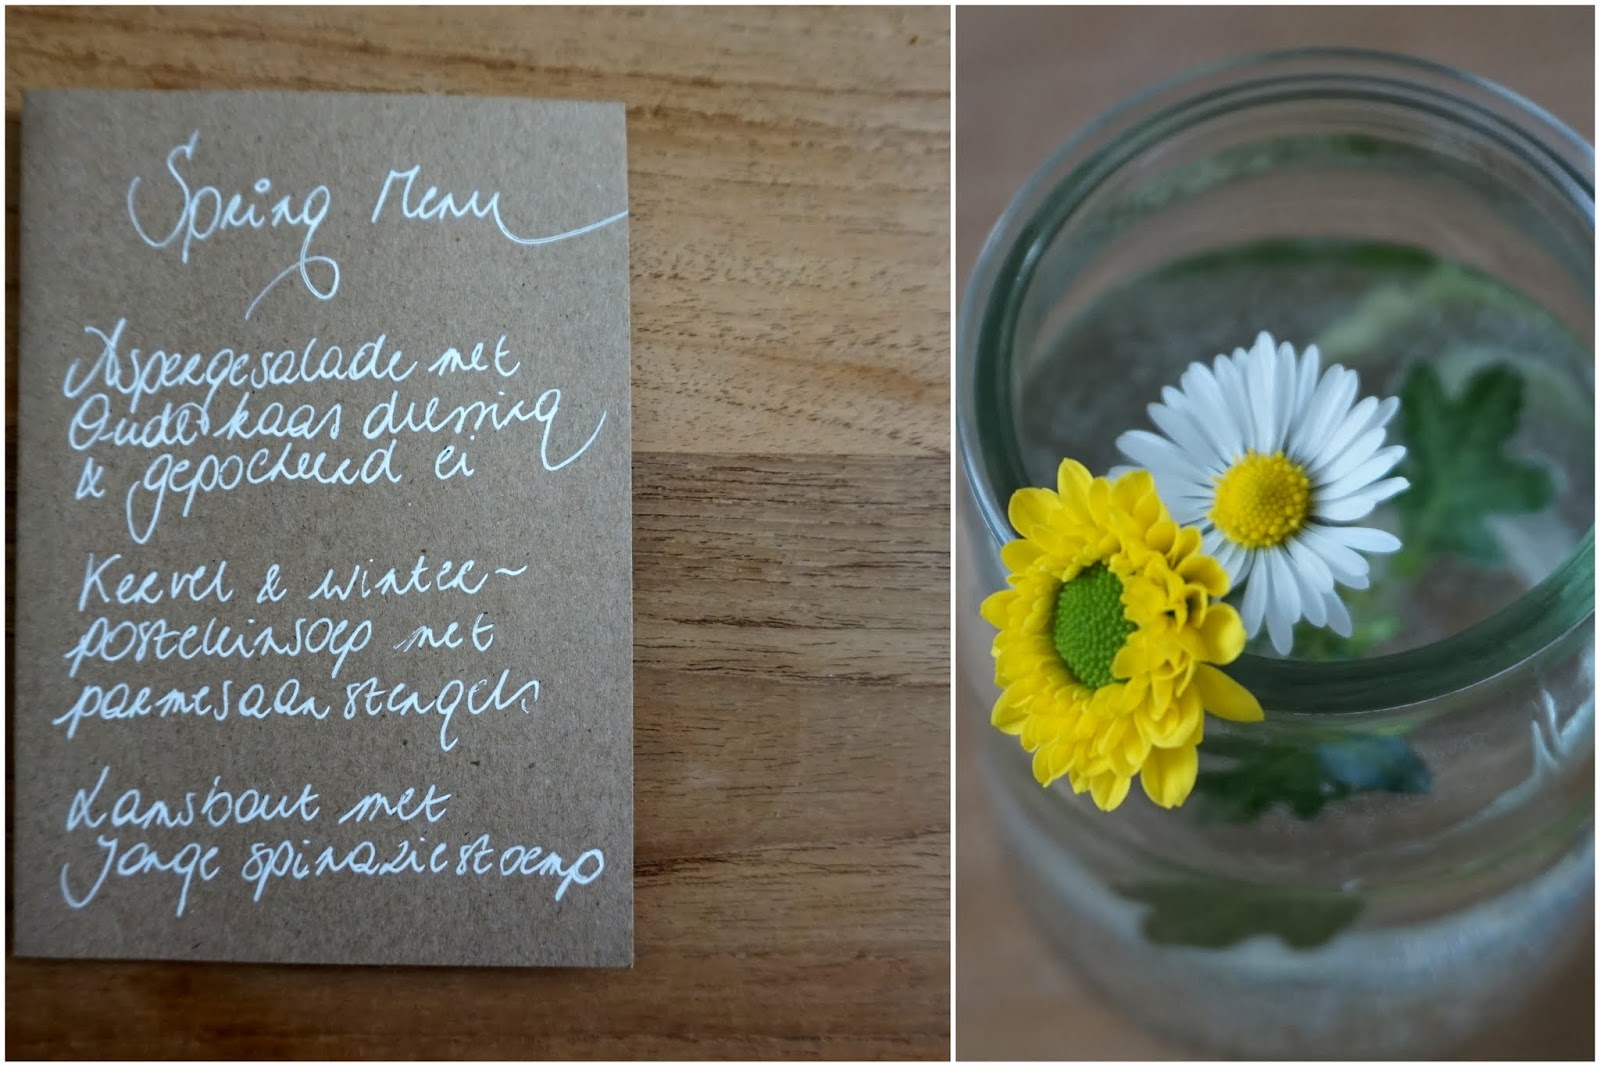 Spring Menu
Aspergesalade met
Oude kaas dressing
& gepocheerd ei
Kervel & winter~
posteleinsoep met
parmesaan stengels
Lamsbout met
Jonge spinaziestoemp